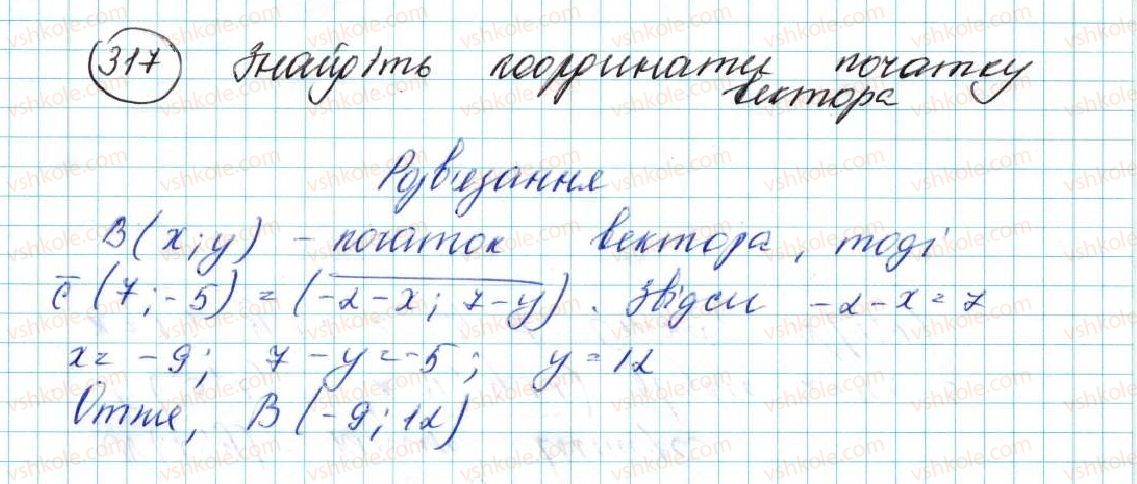 317 Знайдіть координати початку
вектора
Розв'язання
B(x;y) - початок вектора, тоді
c̅ (7;-5) = (-2-x; 7-y). Звідси -2-x=7
x= -9; 7-y=-5; y=12
Отже, B(-9;12)